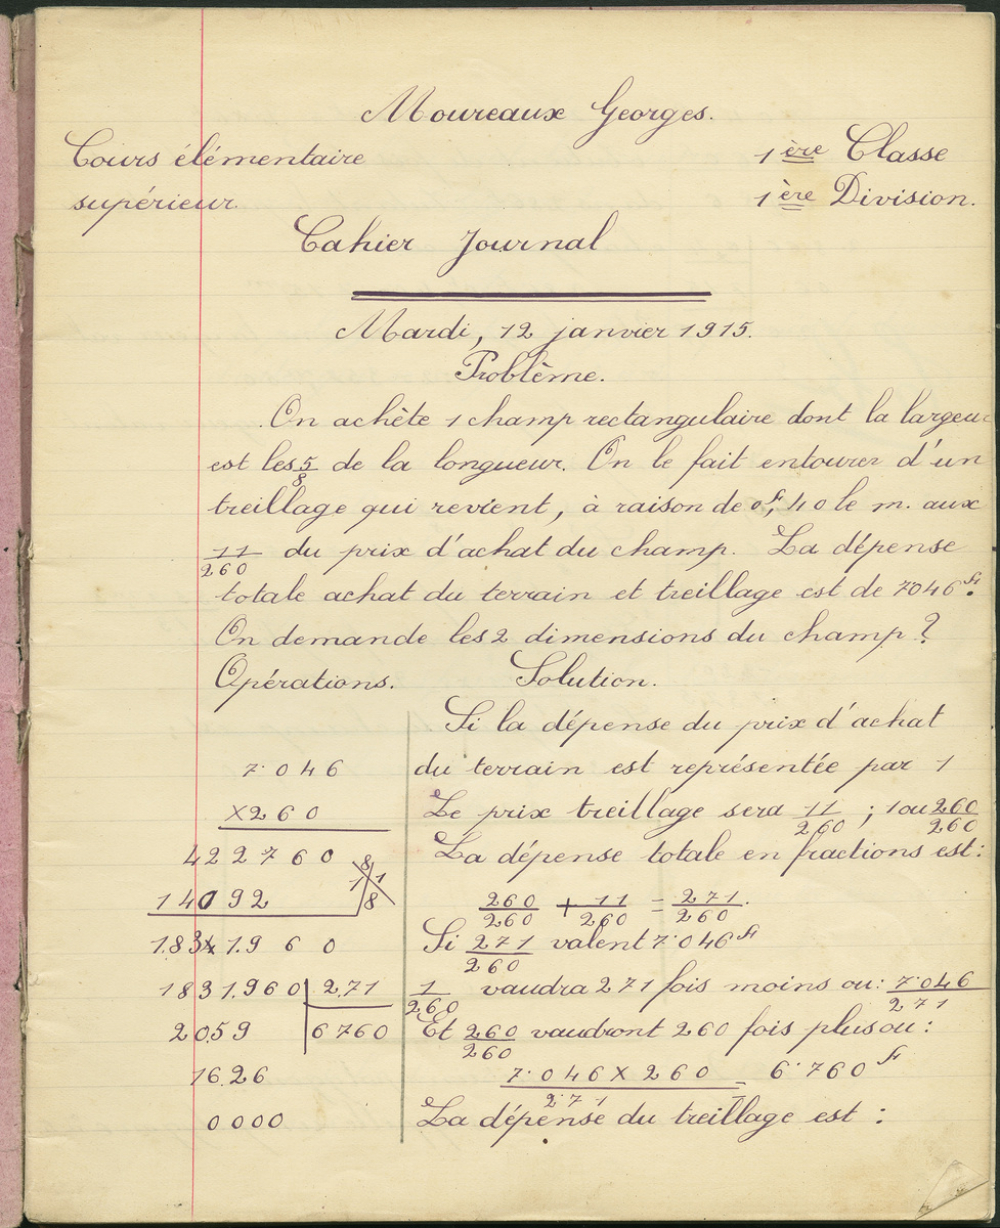 Moureaux Georges.
Cours élémentaire 1ère Classe
supérieur. 1ère Division.
Cahier Journal
Mardi, 12 janvier 1915.
Problème.
On achète 1 champ rectangulaire dont la largeur
est les 5/8 de la longueur. On le fait entourer d'un
treillage qui revient, à raison de 0f,40 le m. aux
11/260 du prix d'achat du champ. La dépense
totale achat du terrain et treillage est de 7046fr.
On demande les 2 dimensions du champ?
Opérations. Solution.
Si la dépense du prix d'achat
7.046 du terrain est représentée par 1
×260 Le prix treillage sera 11/260 ; 1 ou 260/260
422760 La dépense totale en fractions est:
8 1 1 8
14092 260/260 + 11/260 = 271/260.
1.831.960 Si 271/260 valent 7.046fr
1831.960 | 271 1/260 vaudra 271 fois moins ou: 7.046/271
2059 | 6760 Et 260/260 vaudront 260 fois plus ou:
1626 7.046 × 260/271 = 6.760fr
0000 La dépense du treillage est :